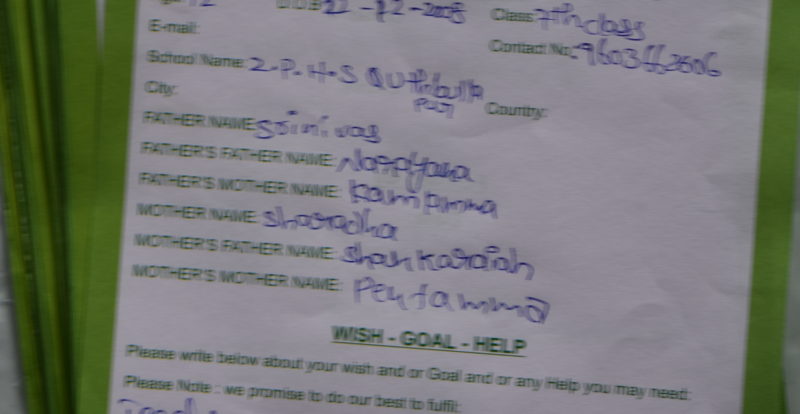 12 DOB: 22-12-2008 Class: 7th class
E-mail: Contact No: 9603662606
School Name: Z.P.H.S QUthbulla
Pur
City: Country:
FATHER NAME: Srinivas
FATHER'S FATHER NAME: Narayana
FATHER'S MOTHER NAME:
MOTHER NAME: Sharadha
MOTHER'S FATHER NAME: Shankaraiah
MOTHER'S MOTHER NAME: Pentamma
WISH - GOAL - HELP
Please write below about your wish and or Goal and or any Help you may need:
Please Note : we promise to do our best to fulfil: